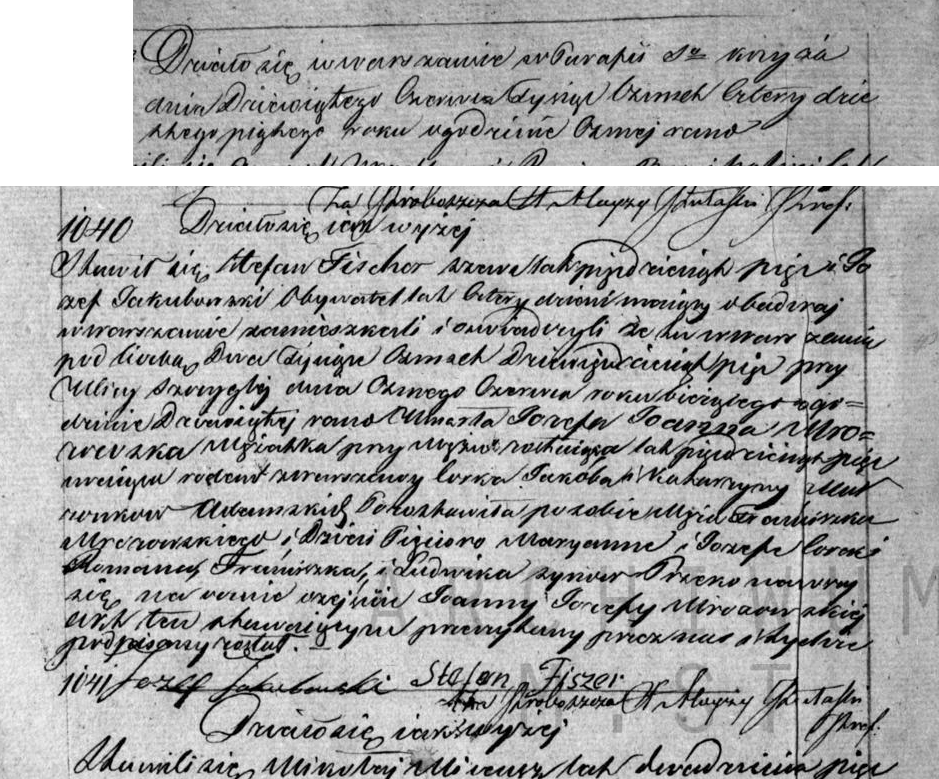 Działo się w Warszawie w Parafii Sgo krzyża
dnia Dziewiątego Czerwca tysiąc Ośmset Cztery dzie
stego piątego roku o godzinie Osmej rano
Za Proboszcza X Alojzy
1040 Działo się jak wyżej
Stawił się Stefan Fischer szewc lat pięćdziesiąt pięć i Jo
zef Jakubowski Obywatel lat Cztery dzieści mający obadwaj
w warszawie zamieszkali i oswiadczyli że tu w warszawie
pod liczbą Dwa tysiące Osmset Dziewięćdziesiąt pięć przy
Ulicy Szczyglej dnia Osmego Czerwca roku bieżącego o go=
dzinie Dziewiątej rano Umarła Jozefa Joanna Mro=
zowska Mężatka przy Mężu lat pięćdziesiąt pięć
mająca rodem z warszawy Corka Jakoba i Katarzyny Mał
żonkow Adamskich Pozostawiła po sobie Męża Franciszka
Mrozowskiego i Dzieci Pięcioro Maryannę i Jozefę Corki
Romana, Franciszka, i Ludwika synow Przekonawszy
się naocznie o zejściu Joanny Jozefy Mrozowskiej
Akt ten stawającym przeczytany przez nas i tychże
podpisany został.
1041 Jozef Jakubowski Stefan Fiszer
Za Proboszcza X Alojzy
Działo się jak wyżej
Stawili się Mikołaj lat dwadzieścia pięć